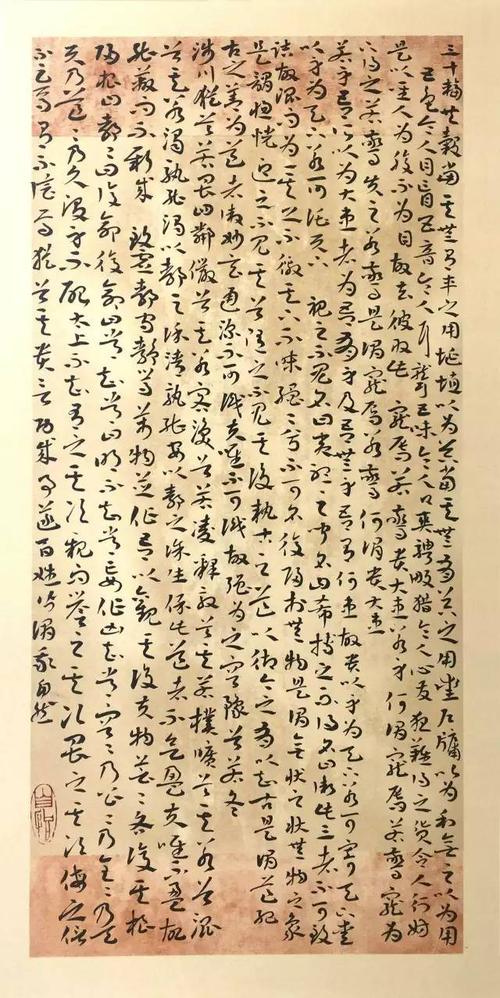 三十輻共轂當其無有車之用埏埴以為器當其無有器之用鑿戶牖以為利無之以為用
五色令人目盲五音令人耳聾五味令人口爽馳騁畋獵令人心發狂難得之貨令人行妨
是以聖人為腹不為目故去彼取此 寵辱若驚貴大患若身何謂寵辱若驚寵為
下得之若驚失之若驚是謂寵辱若驚何謂貴大患
若身吾所以有大患者為吾有身及吾無身吾有何患故貴以身為天下若可寄天下愛
以身為天下若可託天下 視之不見名曰夷聽之不聞名曰希搏之不得名曰微此三者不可致
詰故混而為一其上不皦其下不昧繩〻兮不可名復歸於無物是謂無狀之狀無物之象
是謂惚恍迎之不見其首隨之不見其後執古之道以御今之有以知古是謂道紀
古之善為道者微妙玄通深不可識夫唯不可識故強為之容豫兮若冬
涉川猶兮若畏四鄰儼兮其若客渙兮若凌釋敦兮其若樸曠兮其若谷混
兮其若濁孰能濁以靜之徐清孰能安以動之徐生保此道者不欲盈夫唯不盈故
能蔽而不新成 致虛靜守篤萬物並作吾以觀其復夫物芸〻各復其根
歸根曰靜〻曰復命復命曰常知常曰明不知常妄作凶知常容〻乃公〻乃全〻乃天
天乃道〻乃久沒身不殆太上不知有之其次親而譽之其次畏之其次侮之信
不足焉有不信焉猶兮其貴言功成事遂百姓皆謂我自然